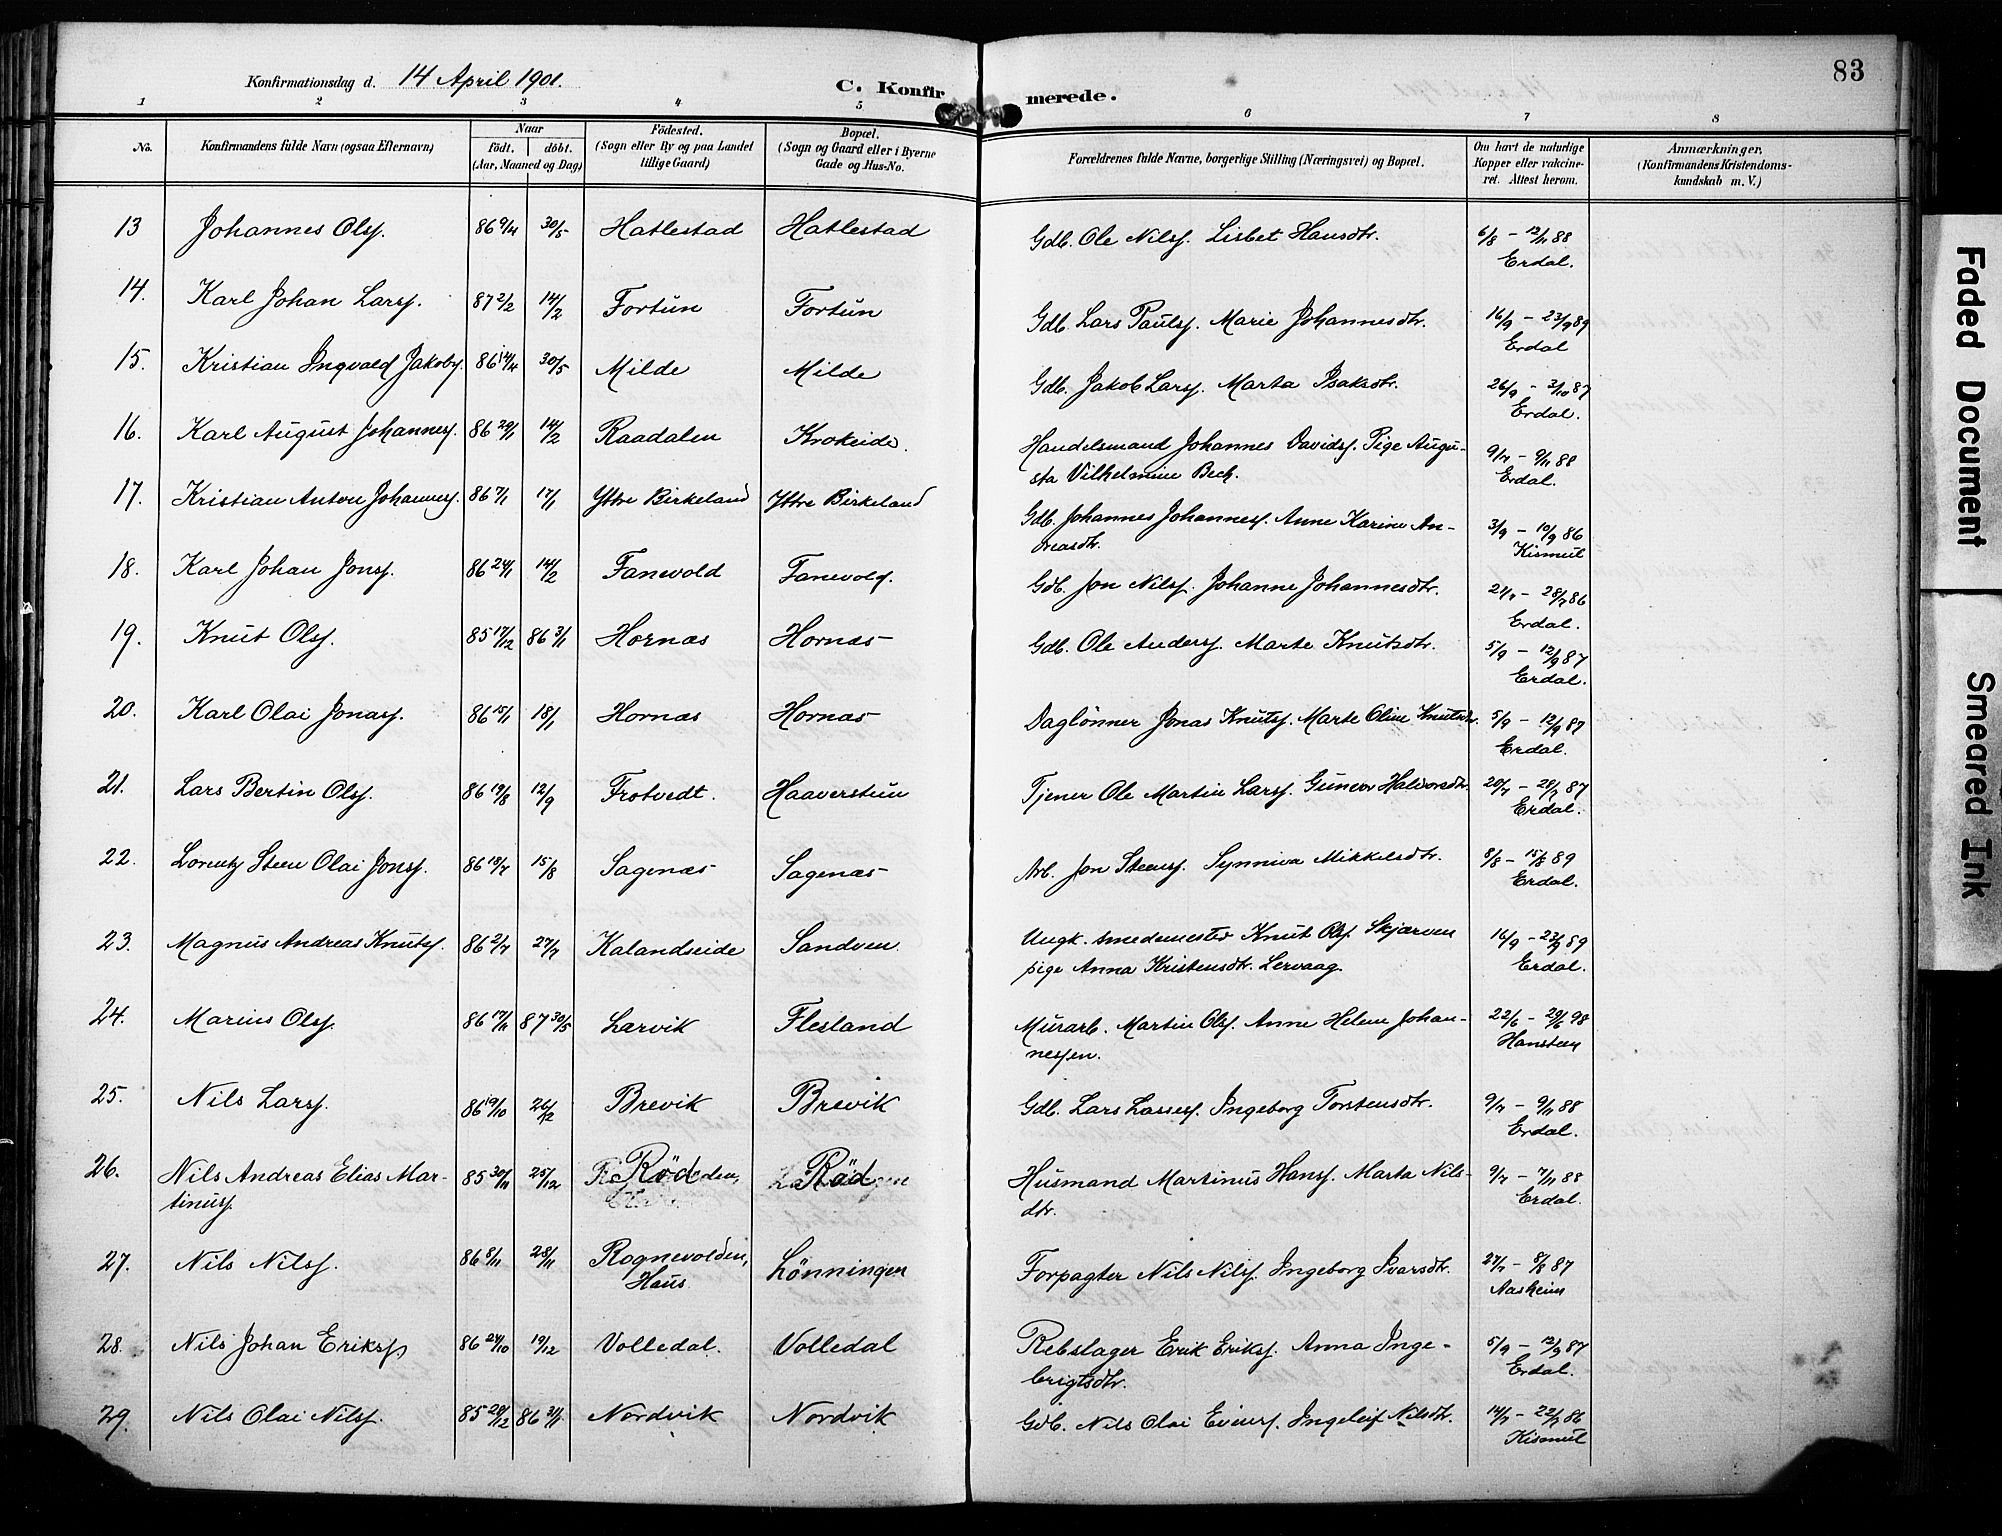 Konfirmationsdag d. 14 April 1901.
C. Konfirmerede.
83
1 2 3 4 5 6 7 8
No.
Konfirmandens fulde Navn (ogsaa Efternavn)
Naar
födt. döbt.
(Aar, Maaned og Dag)
Födested.
(Sogn eller By og paa Landet
tillige Gaard)
Bopæl.
(Sogn og Gaard eller i Byerne
Gade og Hus-No.
Forældrenes fulde Navne, borgerlige Stilling (Næringsvei) og Bopæl.
Om havt de naturlige
Kopper eller vakcine-
ret. Attest herom.
Anmærkninger,
(Konfirmandens Kristendoms-
kundskab m. V.)
13 Johannes Olsf. 86 9/4 30/5 Hatlestad Hatlestad Gdb. Ole Nilsf. Lisbet Hansdtr. 6/8 - 12/11 88
Erdal.
14. Karl Johan Larsf. 87 2/2 14/2 Fortun Fortun Gdb. Lars Paulsf. Marie Johannesdtr. 16/9 - 23/9 89
Erdal
15. Kristian Ingvald Jakobsf. 86 14/4 30/5 Milde Milde Gdb. Jakob Larsf. Marta Isaksdtr. 26/9 - 3/10 87
Erdal.
16. Karl August Johannesf. 86 29/1 14/2 Raadalen Krokeide. Handelsmand Johannes Davidsf. Pige Augu-
sta Vilhelmine Beck. 9/7 - 9/11 88
Erdal.
17. Kristian Anton Johannesf. 86 7/1 17/1 Ytre Birkeland Ytre Birkeland Gdb. Johannes Johannesf. Anne Karine An-
dreasdtr. 3/9 - 10/9 86
Kismul
18. Karl Johan Jonsf. 86 24/1 14/2 Fanevold Fanevold. Gdb. Jon Nilsf. Johanne Johannesdtr. 21/7 - 28/7 86
Erdal.
19. Knut Olsf. 85 17/12 86 3/1 Hornæs Hornæs Gdb. Ole Andersf. Marte Knutsdtr. 5/9 - 12/9 87
Erdal.
20. Karl Olai Jonasf. 86 15/1 18/1 Hornæs Hornæs Daglönner Jonas Knutsf. Marte Oline Knutsdtr. 5/9 - 12/9 87
Erdal.
21. Lars Bertin Olsf. 86 19/8 12/9 Frotvedt. Haaverstun Tjener Ole Martin Larsf. Gunvor Halvorsdtr. 20/7 - 28/7 87
Erdal.
22. Lorentz Steen Olai Jonsf. 86 18/7 15/8 Sagenæs Sagenæs Arb. Jon Steensf. Synniva Mikkelsdtr. 8/8 - 15/8 89
Erdal.
23. Magnus Andreas Knutsf. 86 2/7 27/7 Kalandseide Sandven Ungk. smedemester Knut Olsf. Skjærven
pige Anna Kristensdtr. Lervaag. 16/9 - 23/9 89
Erdal.
24. Marius Olsf. 86 17/11 87 30/5 Larvik Flesland Murarb. Martin Olsf. Anne Helene Johan-
nessen. 22/6 - 29/6 98
Hansteen
25. Nils Larsf. 86 19/10 26/12 Brevik Brevik Gdb. Lars Lassesf. Ingeborg Torstensdtr. 9/7 - 9/11 88
Erdal.
26. Nils Andreas Elias Mar-
tinusf. 85 30/11 25/12 Röd Röd Husmand Martinus Hansf. Marta Nils-
dtr. 9/7 - 7/11 88
Erdal.
27. Nils Nilsf. 86 8/11 28/11 Rognevolden,
Haus. Lönningen Forpagter Nils Nilsf. Ingeborg Ivarsdtr. 27/7 - 8/8 87
Aasheim
28. Nils Johan Eriksf. 86 24/10 19/12 Volledal. Volledal Rebslager Erik Eriksf. Anna Inge-
brigtsdtr. 5/9 - 12/9 87
Erdal.
29. Nils Olai Nilsf. 85 28/12 86 31/1 Nordvik Nordvik Gdb. Nils Olai Einersf. Ingeleif Nilsdtr. 14/7 - 22/7 86
Kismul
Faded Document
Smeared Ink